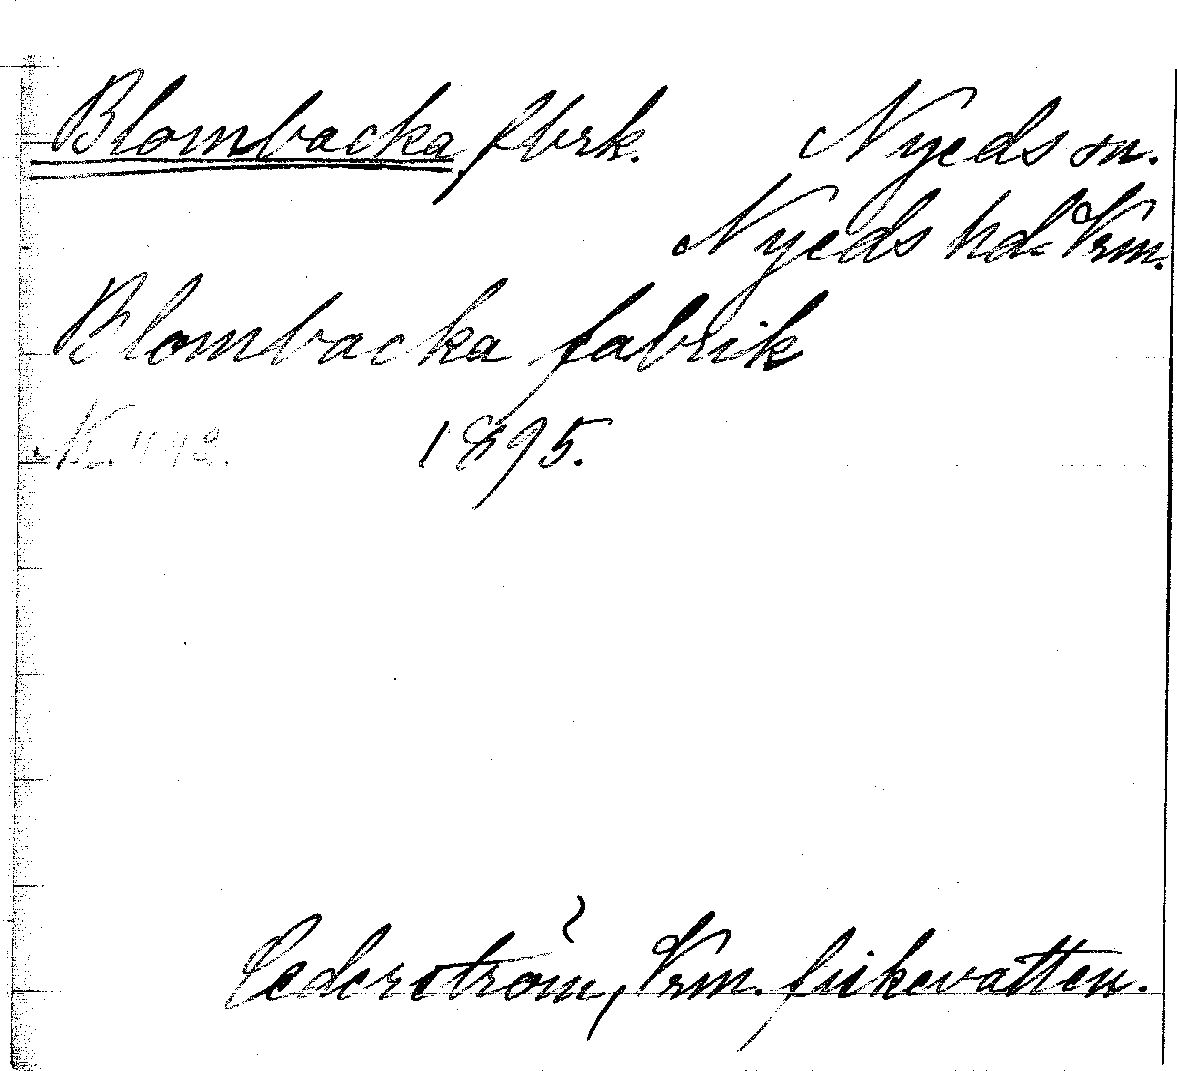 Blombacka fbrk. Nyeds sn.
Nyeds hd Vrm.
Blombacka fabrik
1895.
Cederström, Vrm. fiskevatten.